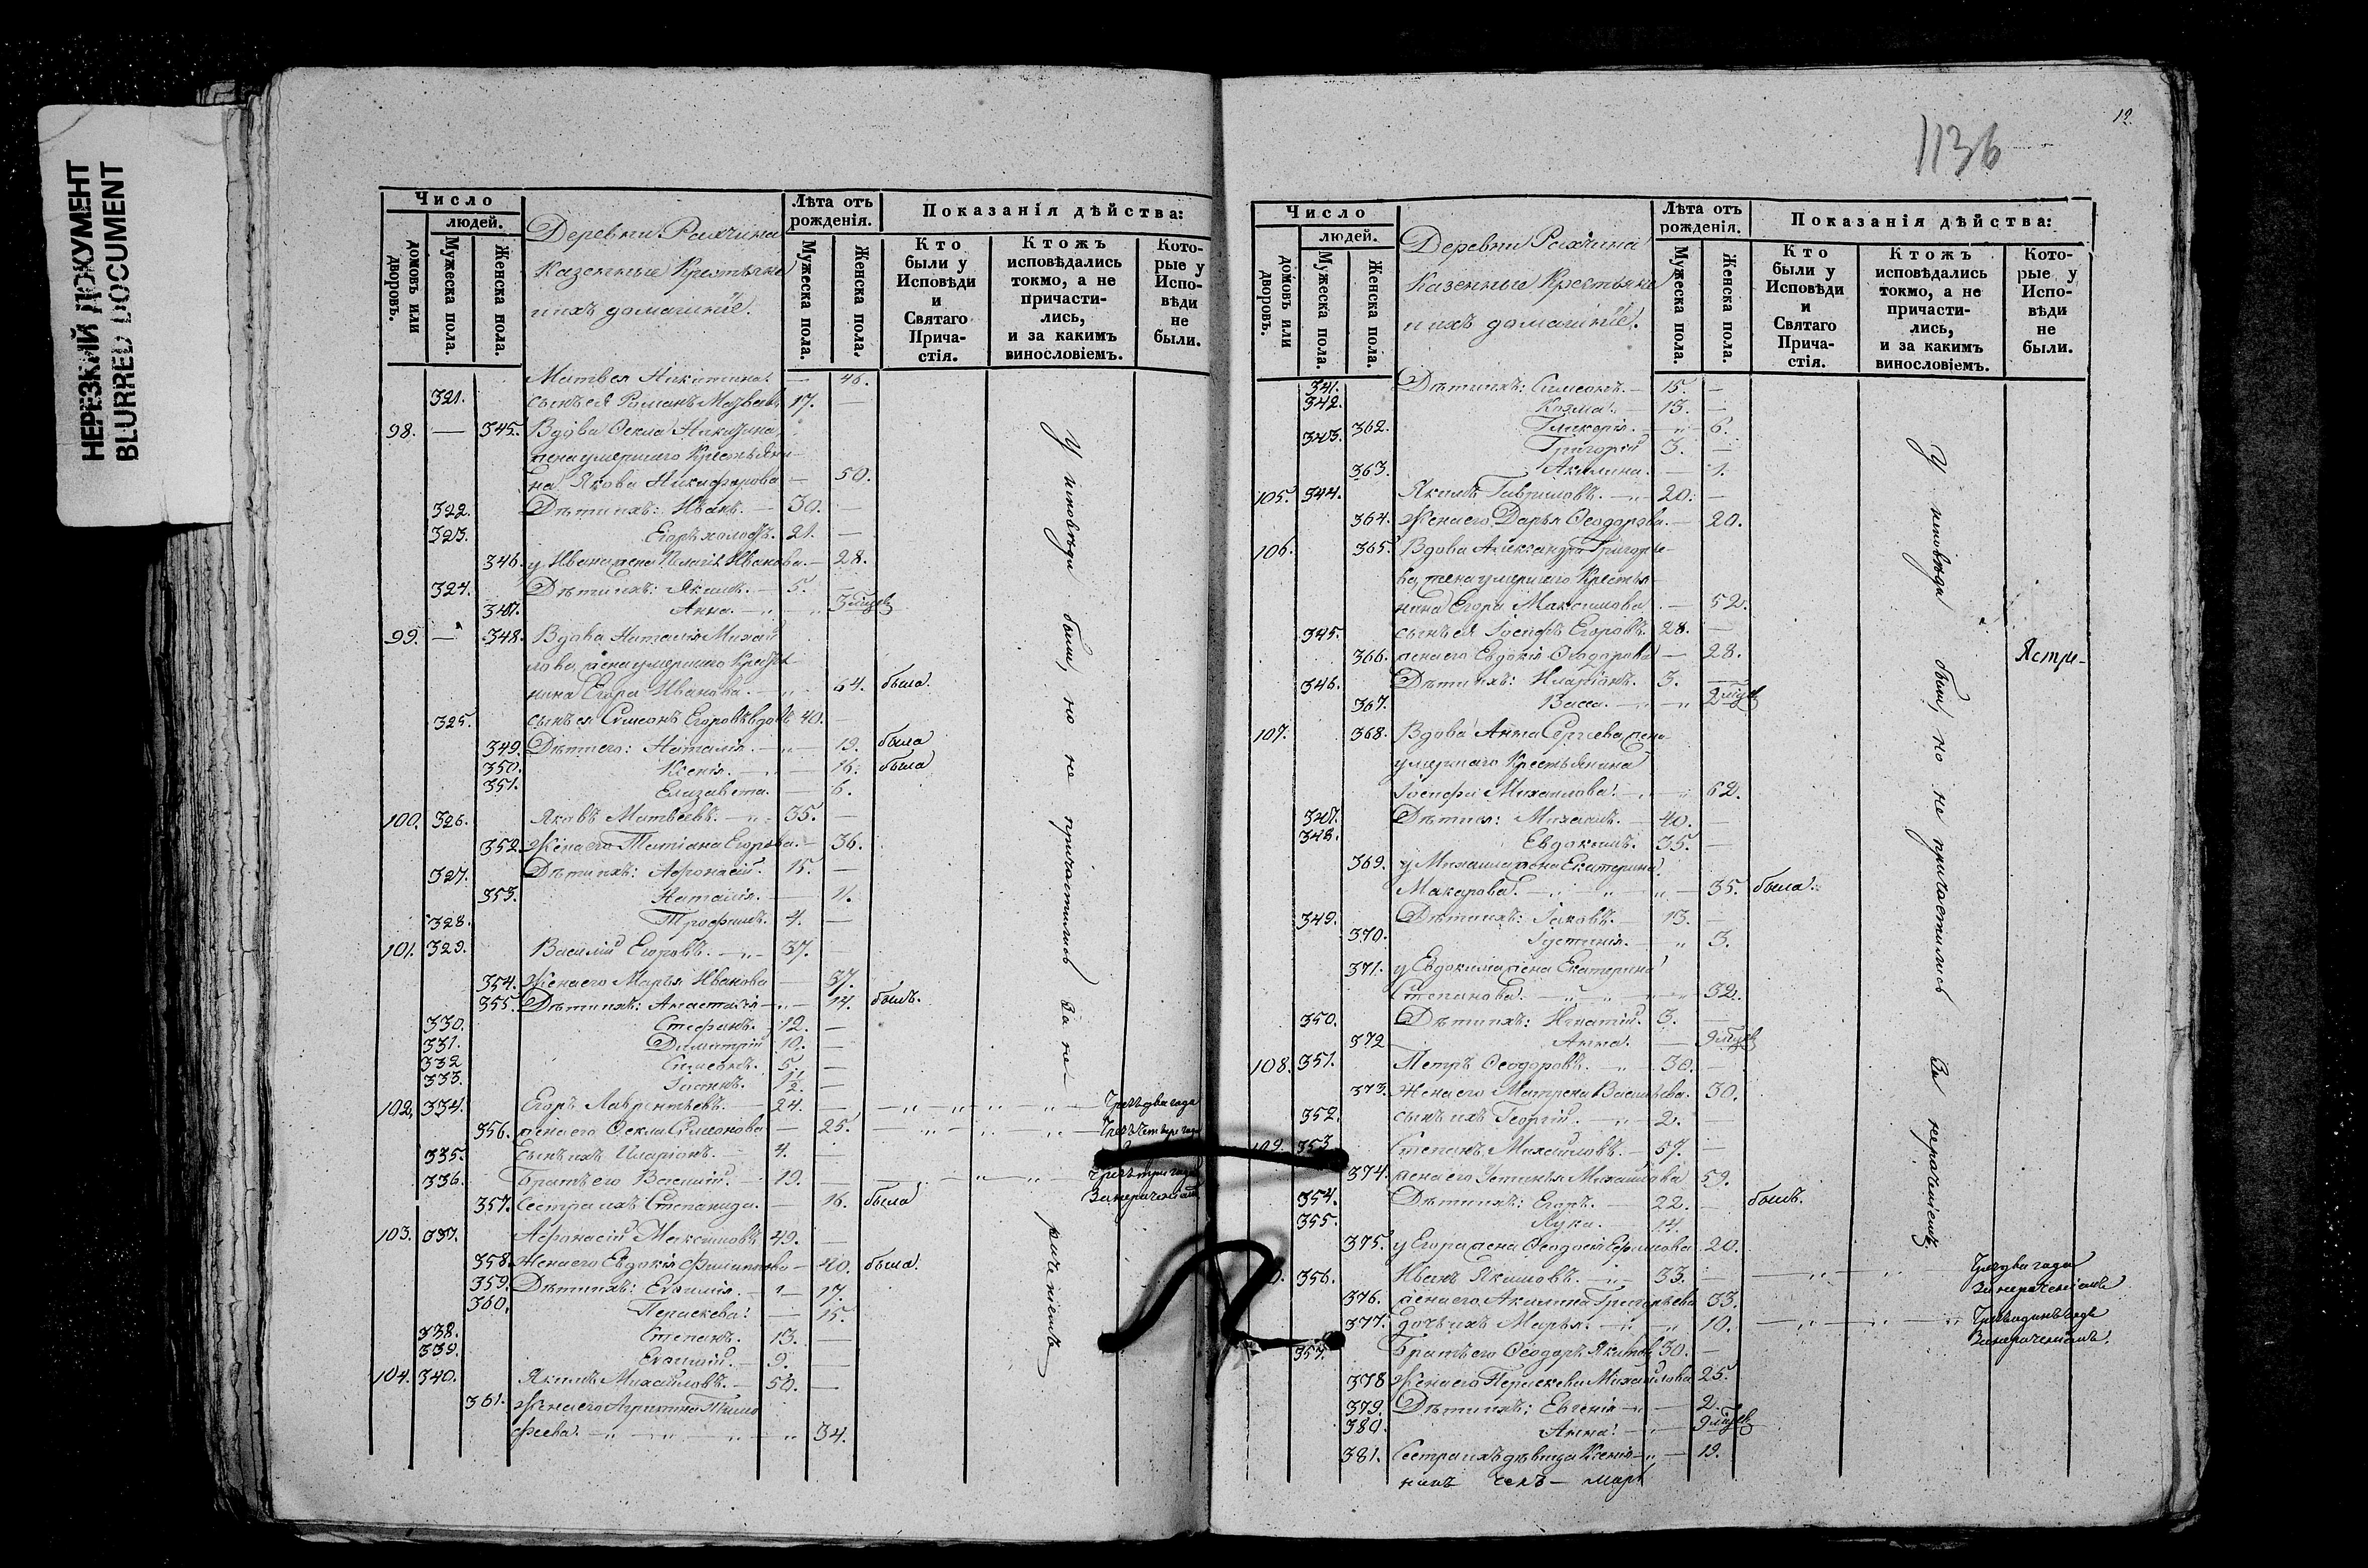 НЕРЕЗКИЙ ДОКУМЕНТ
BLURRED DOCUMENT
Число
людей.
домовъ или дворовъ.
Мужеска пола.
Женска пола.
Деревни
Казенные Крестьяне
и ихъ домашніе.
Лѣта отъ рожденія.
Мужеска пола.
Женска пола.
Показанія дѣйства:
Кто были у Исповѣди и Святаго Причастія.
Ктожъ исповѣдались токмо, а не причастились, и за какимъ винословіемъ.
Которые у Исповѣди не были.
Матвея Никитина — 46.
321. сынъ ея Романъ 17. —
98. — 345. Вдова Фекла Никитина,
жена умершаго Крестьяни-
на Якова Никифорова — 50.
322. Дѣти ихъ: Иванъ. — 30. —
323. Егоръ холостъ. 21. —
346. у Ивана жена Пелагія Иванова. — 28.
324. Дѣти ихъ: Якимъ. — 5. —
347. Анна. — 3
99. — 348. Вдова Наталія Михай
лова, жена умершаго Крестья-
нина Егора Иванова. — 64. была.
325. сынъ ея Симеонъ Егоровъ вдовъ 40. —
349. Дѣти его: Наталія. — 19. была
350. Ксенія. — 16. была
351. Елизавета. — 6.
100. 326. Яковъ Матвѣевъ. — 35. —
352. Жена его Татіана Егорова. — 36.
327. Дѣти ихъ: Афонасій. 15. —
353. Наталія. — 11.
328. Трофимъ. 4. —
101. 329. Василій Егоровъ. — 37. —
354. Жена его Марья Иванова — 37.
355. Дѣти ихъ: Анастасія — 14. былъ.
330. Стефанъ. 12. —
331. Димитрій 10. —
332 Симеонъ. 5. —
333. Іоаннъ. 1/2. —
102. 334. Егоръ Лаврентьевъ. — 24. — Чрезъ два года
356. жена его Фекла Симеонова — 25. Чрезъ четыре года
335. Сынъ ихъ Иларіонъ. — 4. —
336. Братъ его Василій. — 19. — Чрезъ три года
357. Сестра ихъ Степанида. — 16. была За нераченіемъ
103. 337. Афонасій Максимовъ 49. —
358. Жена его Евдокія Филиппова — 40. была.
359. Дѣти ихъ: — 17.
360. Параскева. — 15.
338. Степанъ. 13. —
339. 9. —
104. 340. Якимъ Михайловъ. — 50. —
361. Жена его Агрипина Тимо
феева. — 34.
У исповѣди были, но не причастились за нераченіемъ
1136
12.
Число
людей.
домовъ или дворовъ.
Мужеска пола.
Женска пола.
Деревни
Казенные Крестьяне
и ихъ домашніе.
Лѣта отъ рожденія.
Мужеска пола.
Женска пола.
Показанія дѣйства:
Кто были у Исповѣди и Святаго Причастія.
Ктожъ исповѣдались токмо, а не причастились, и за какимъ винословіемъ.
Которые у Исповѣди не были.
341. Дѣти ихъ: Симеонъ. — 15. —
342. Козма. — 13. —
362. Гликерія. — 6.
343. Григорій 3. —
363. Акилина. — 1.
105. 344. Якимъ Гавриловъ. — 20. —
364. Жена его Дарья Ѳеодорова. — 20.
106. 365. Вдова Александра Григорье-
ва, жена умершаго Крестья-
нина Егора Максимова. — 52.
345. сынъ ея Іосифъ Егоровъ. 28. —
366. жена его Евдокія Ѳеодорова — 28.
346. Дѣти ихъ: Иларіонъ. 3. —
367. Васса. — 2
Ястре-
107. 368. Вдова Анна Сергѣева, жена
умершаго Крестьянина
Іосифа Михайлова. — 62.
347. Дѣти ея: Михаилъ. — 40. —
348. Евдокимъ. 35. —
369. у Михаила жена Екатерина
Макарова. — 35. была.
349. Дѣти ихъ: Іаковъ. — 13. —
370. Іустинія. — 3.
371. у Евдокима жена Екатерина
Степанова. — 32.
350. Дѣти ихъ: Игнатій. 3. —
372 Анна. — 9
108. 351. Петръ Ѳеодоровъ. — 30. —
373. Жена его Матрена Васильева. 30.
352. сынъ ихъ Георгій. — 2. —
109. 353. Степанъ Михайловъ. — 57. —
374. жена его Устинья Михайлова 59.
354. Дѣти ихъ: Егоръ. — 22. — былъ.
355. Лука. — 14.
375. у Егора жена Ѳеодосія Ефимова 20.
356. Иванъ Якимовъ. — 33. — Чрезъ два года
За нераченіемъ
376. жена его Акилина Григорьева 33.
377. дочь ихъ Марья. — 10. — Чрезъ одинъ годъ
За нераченіемъ.
357. Братъ его Ѳеодоръ Якимов 30. —
378 Жена его Параскева Михайлова 25.
379. Дѣти ихъ: Евгенія — 2.
380. Анна. — 9
381. Сестра ихъ дѣвица Ксенія — 19.
У исповѣди были, но не причастились за нераченіемъ.